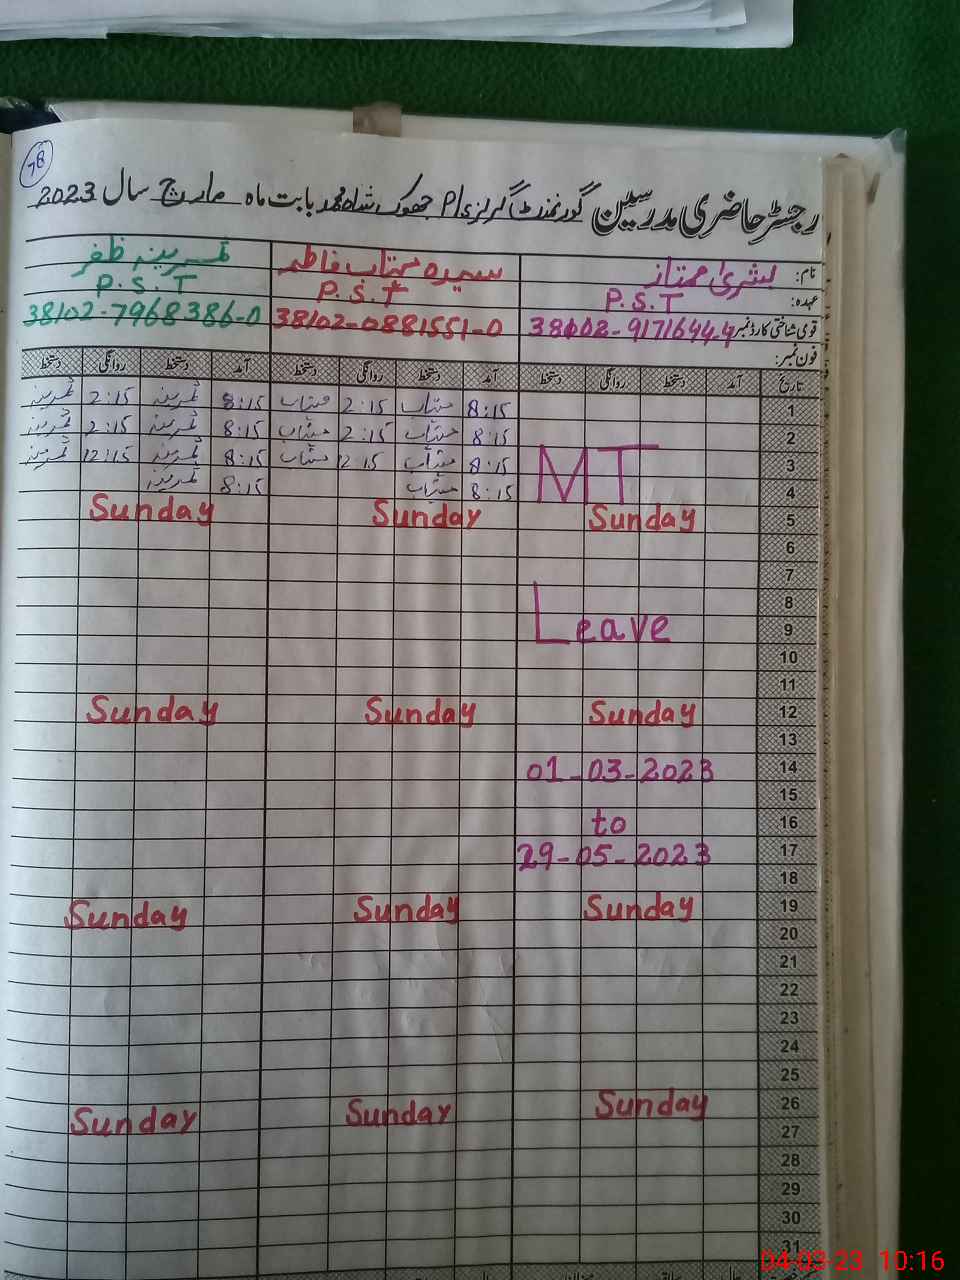 78
رجسٹر حاضری مدرسین گورنمنٹ گرلز P/ جھوک شاہ محمد بابت ماہ مارچ سال 2023
نام: بشریٰ ممتاز سیدہ مہتاب فاطمہ ثمرینہ ظفر
عہدہ: P.S.T P.S.T P.S.T
قومی شناختی کارڈ نمبر 38102-9171644-4 38102-0881551-0 38102-7968386-0
فون نمبر:
تاریخ آمد دستخط روانگی دستخط آمد دستخط روانگی دستخط آمد دستخط روانگی دستخط
1 8:15 مہتاب 2:15 مہتاب 8:15 ثمرینہ 2:15 ثمرینہ
2 8:15 مہتاب 2:15 مہتاب 8:15 ثمرینہ 2:15 ثمرینہ
3 8:15 مہتاب 12:15 مہتاب 8:15 ثمرینہ 12:15 ثمرینہ
MT
4 8:15 مہتاب 8:15 ثمرینہ
5 Sunday Sunday Sunday
6
7
8
9 Leave
10
11
12 Sunday Sunday Sunday
13
14 01-03-2023
15
16 to
17 29-05-2023
18
19 Sunday Sunday Sunday
20
21
22
23
24
25
26 Sunday Sunday Sunday
27
28
29
30
31
04-03-23 10:16